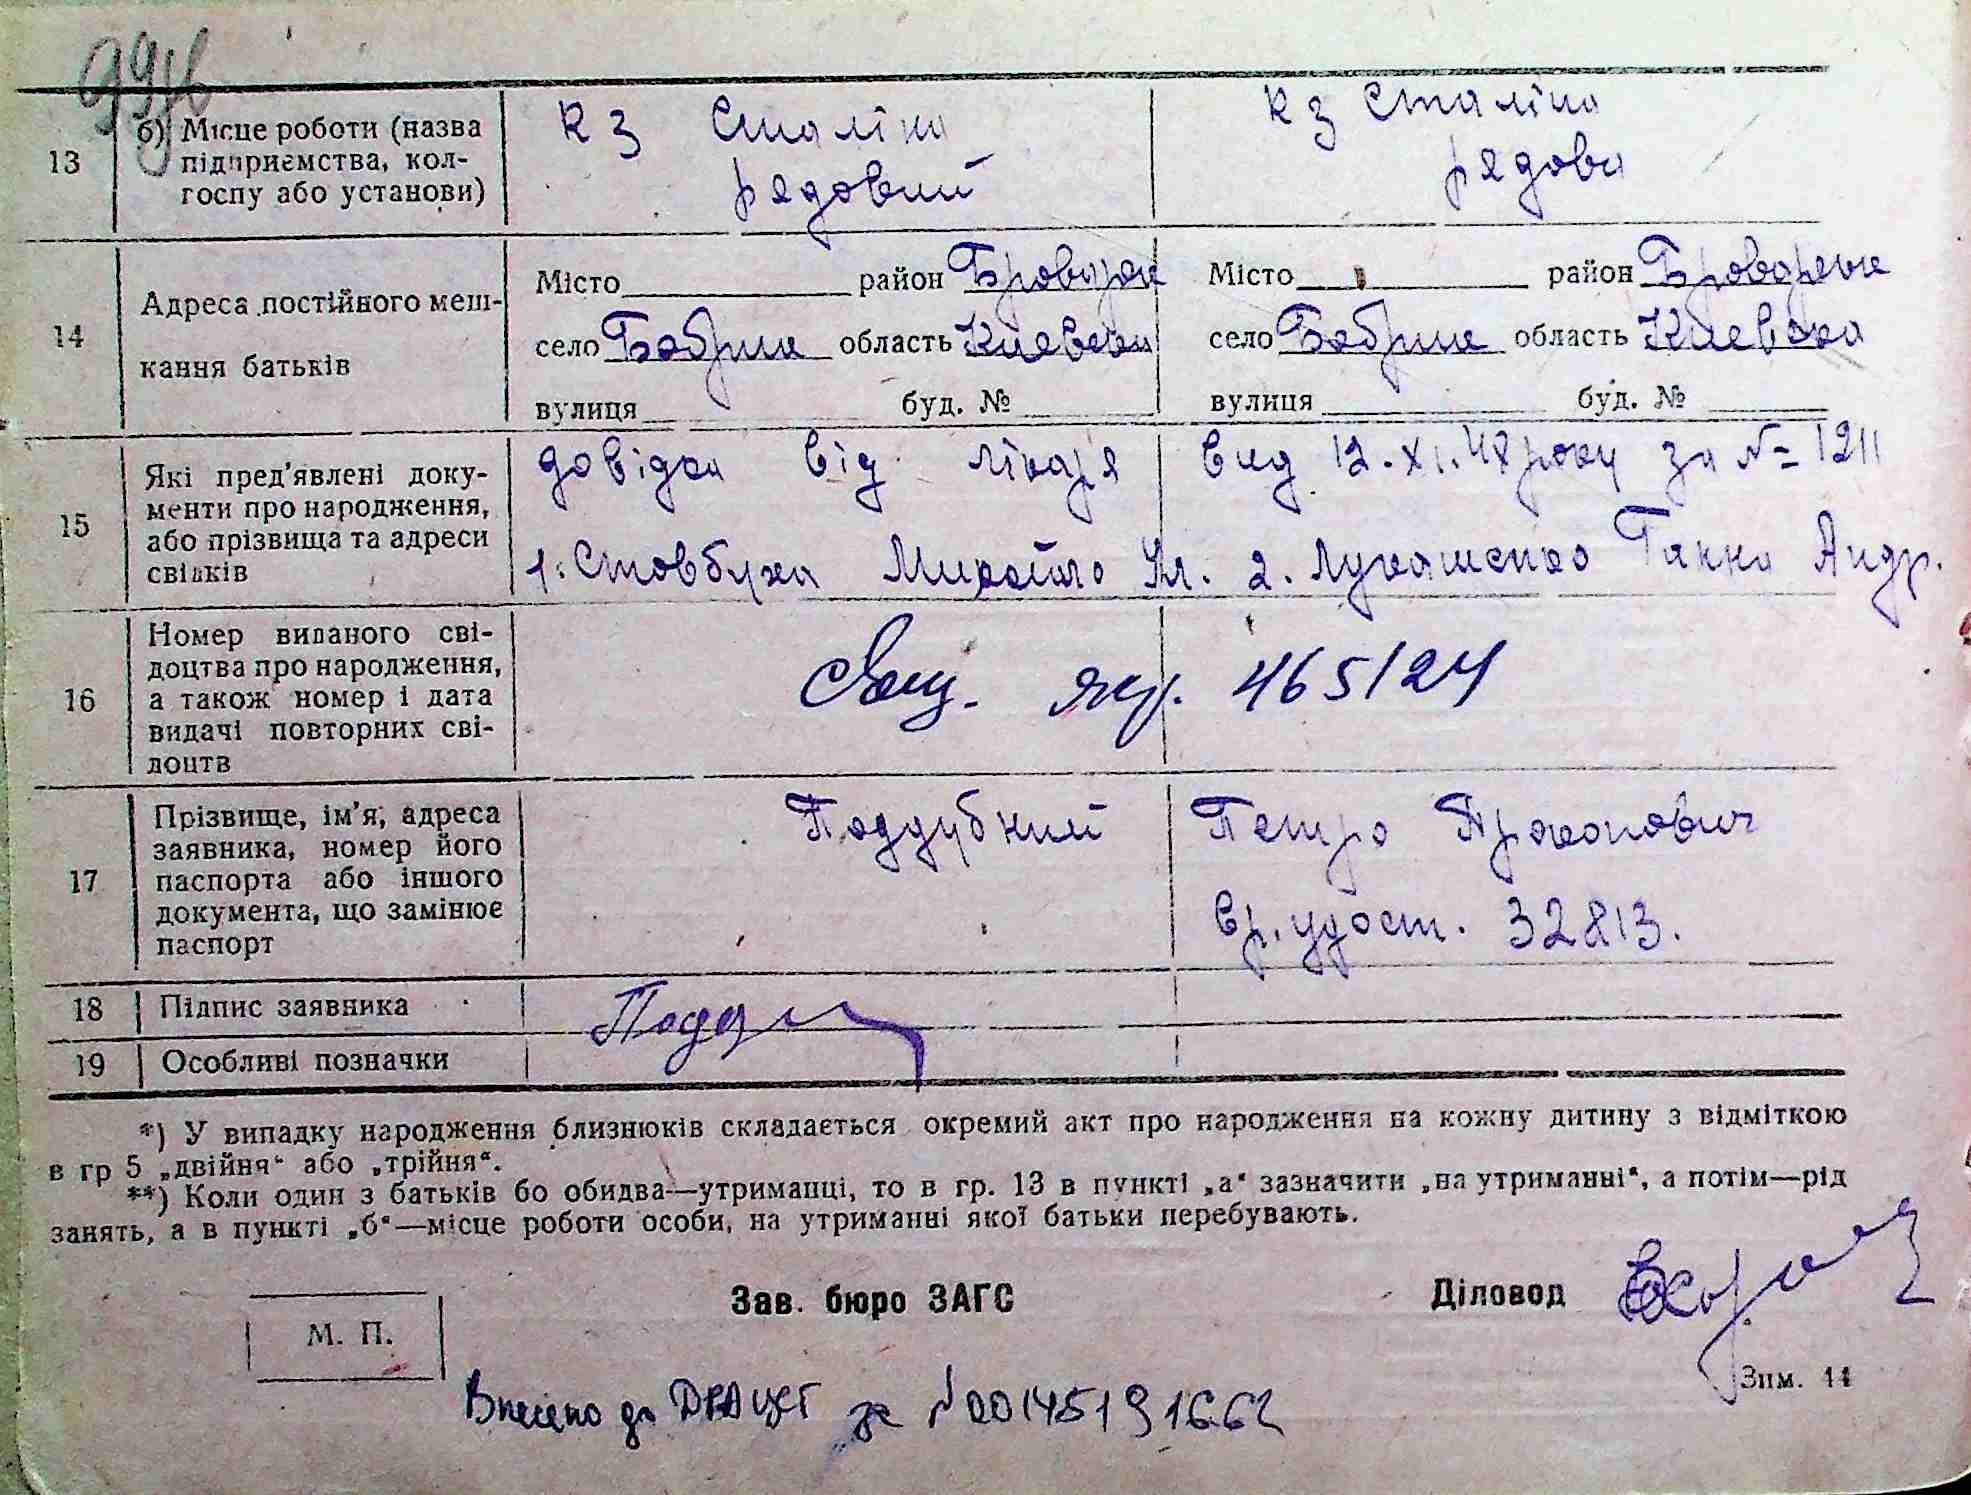 99/6
13 б) Місце роботи (назва підприємства, колгоспу або установи) кз Сталіна рядовий кз Сталіна рядова
14 Адреса постійного мешкання батьків
Місто район Броварск Місто район Броварське
село Бобрик область Київська село Бобрик область Київська
вулиця буд. № вулиця буд. №
15 Які пред'явлені документи про народження, або прізвища та адреси свідків
довідка від лікаря вид 12.XI.48 року за № 1211
1. Стовбуха Михайло 2. Лукашенко Ганна Андр.
16 Номер виданого свідоцтва про народження, а також номер і дата видачі повторних свідоцтв
465124
17 Прізвище, ім'я, адреса заявника, номер його паспорта або іншого документа, що замінює паспорт
Поддубний Петро Прокопович
вр. удост. 32813.
18 Підпис заявника Подду
19 Особливі позначки
*) У випадку народження близнюків складається окремий акт про народження на кожну дитину з відміткою
в гр 5 „двійня“ або „трійня“.
**) Коли один з батьків бо обидва—утриманці, то в гр. 13 в пункті „а“ зазначити „на утриманні“, а потім—рід
занять, а в пункті „б“—місце роботи особи, на утриманні якої батьки перебувають.
Зав. бюро ЗАГС Діловод
М. П.
Зим. 11
Внесено до ДРАЦСГ за №00145191662